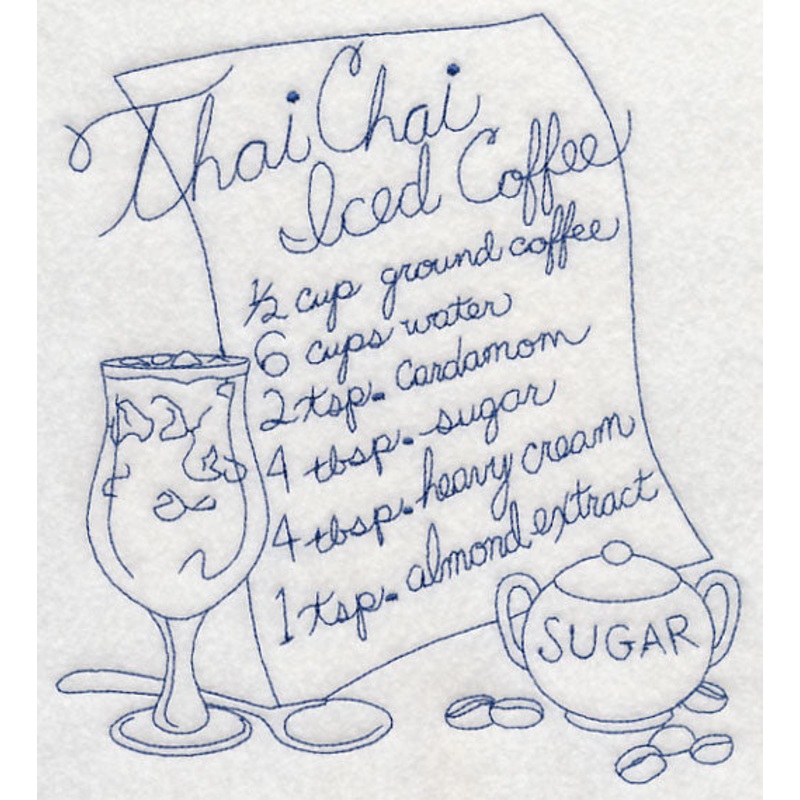 Thai Chai
Iced Coffee
½ cup ground coffee
6 cups water
2 tsp. cardamom
4 tbsp. sugar
4 tbsp. heavy cream
1 tsp. almond extract
SUGAR